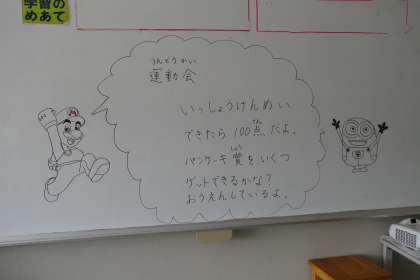 学習の
めあて
うんどうかい
運動会
いっしょうけんめい
できたら100点だよ。
てん
パンケーキ賞をいくつ
しょう
ゲットできるかな?
おうえんしているよ。